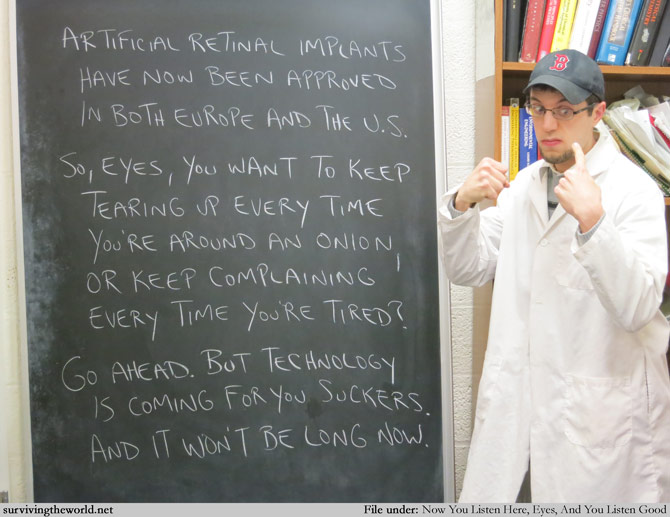 ARTIFICIAL RETINAL IMPLANTS
HAVE NOW BEEN APPROVED
IN BOTH EUROPE AND THE U.S.
SO, EYES, YOU WANT TO KEEP
TEARING UP EVERY TIME
YOU'RE AROUND AN ONION,
OR KEEP COMPLAINING
EVERY TIME YOU'RE TIRED?
GO AHEAD. BUT TECHNOLOGY
IS COMING FOR YOU SUCKERS.
AND IT WON'T BE LONG NOW.
B
survivingtheworld.net
File under: Now You Listen Here, Eyes, And You Listen Good